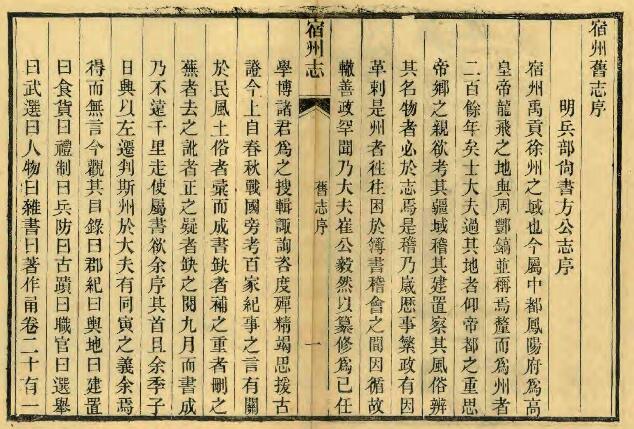 宿州舊志序
明兵部尙書方公志序
宿州禹貢徐州之域也今屬中都鳳陽府爲高
皇帝龍飛之地與周酆鎬並稱焉釐而爲州者
二百餘年矣士大夫過其地者仰帝都之重思
帝鄉之親欲考其疆域稽其建置察其風俗辨
其名物者必於志焉是稽乃歲歴事繁政有因
革剌是州者徃徃困於簿書稽會之間因循故
轍善政罕聞乃大夫崔公毅然以纂修爲已任
宿州志
舊志序
一
學博諸君爲之搜輯諏詢咨度殫精竭思援古
證今上自春秋戰國旁考百家紀事之言有關
於民風土俗者彚而成書缺者補之重者刪之
蕪者去之訛者正之疑者缺之閱九月而書成
乃不遠千里走使屬書欲余序其首且余季子
日興以左遷判斯州於大夫有同寅之義余焉
得而無言今觀其目錄曰郡紀曰輿地曰建置
曰食貨曰禮制曰兵防曰古蹟曰職官曰選舉
曰武選曰人物曰雜書曰著作凾卷二十有一